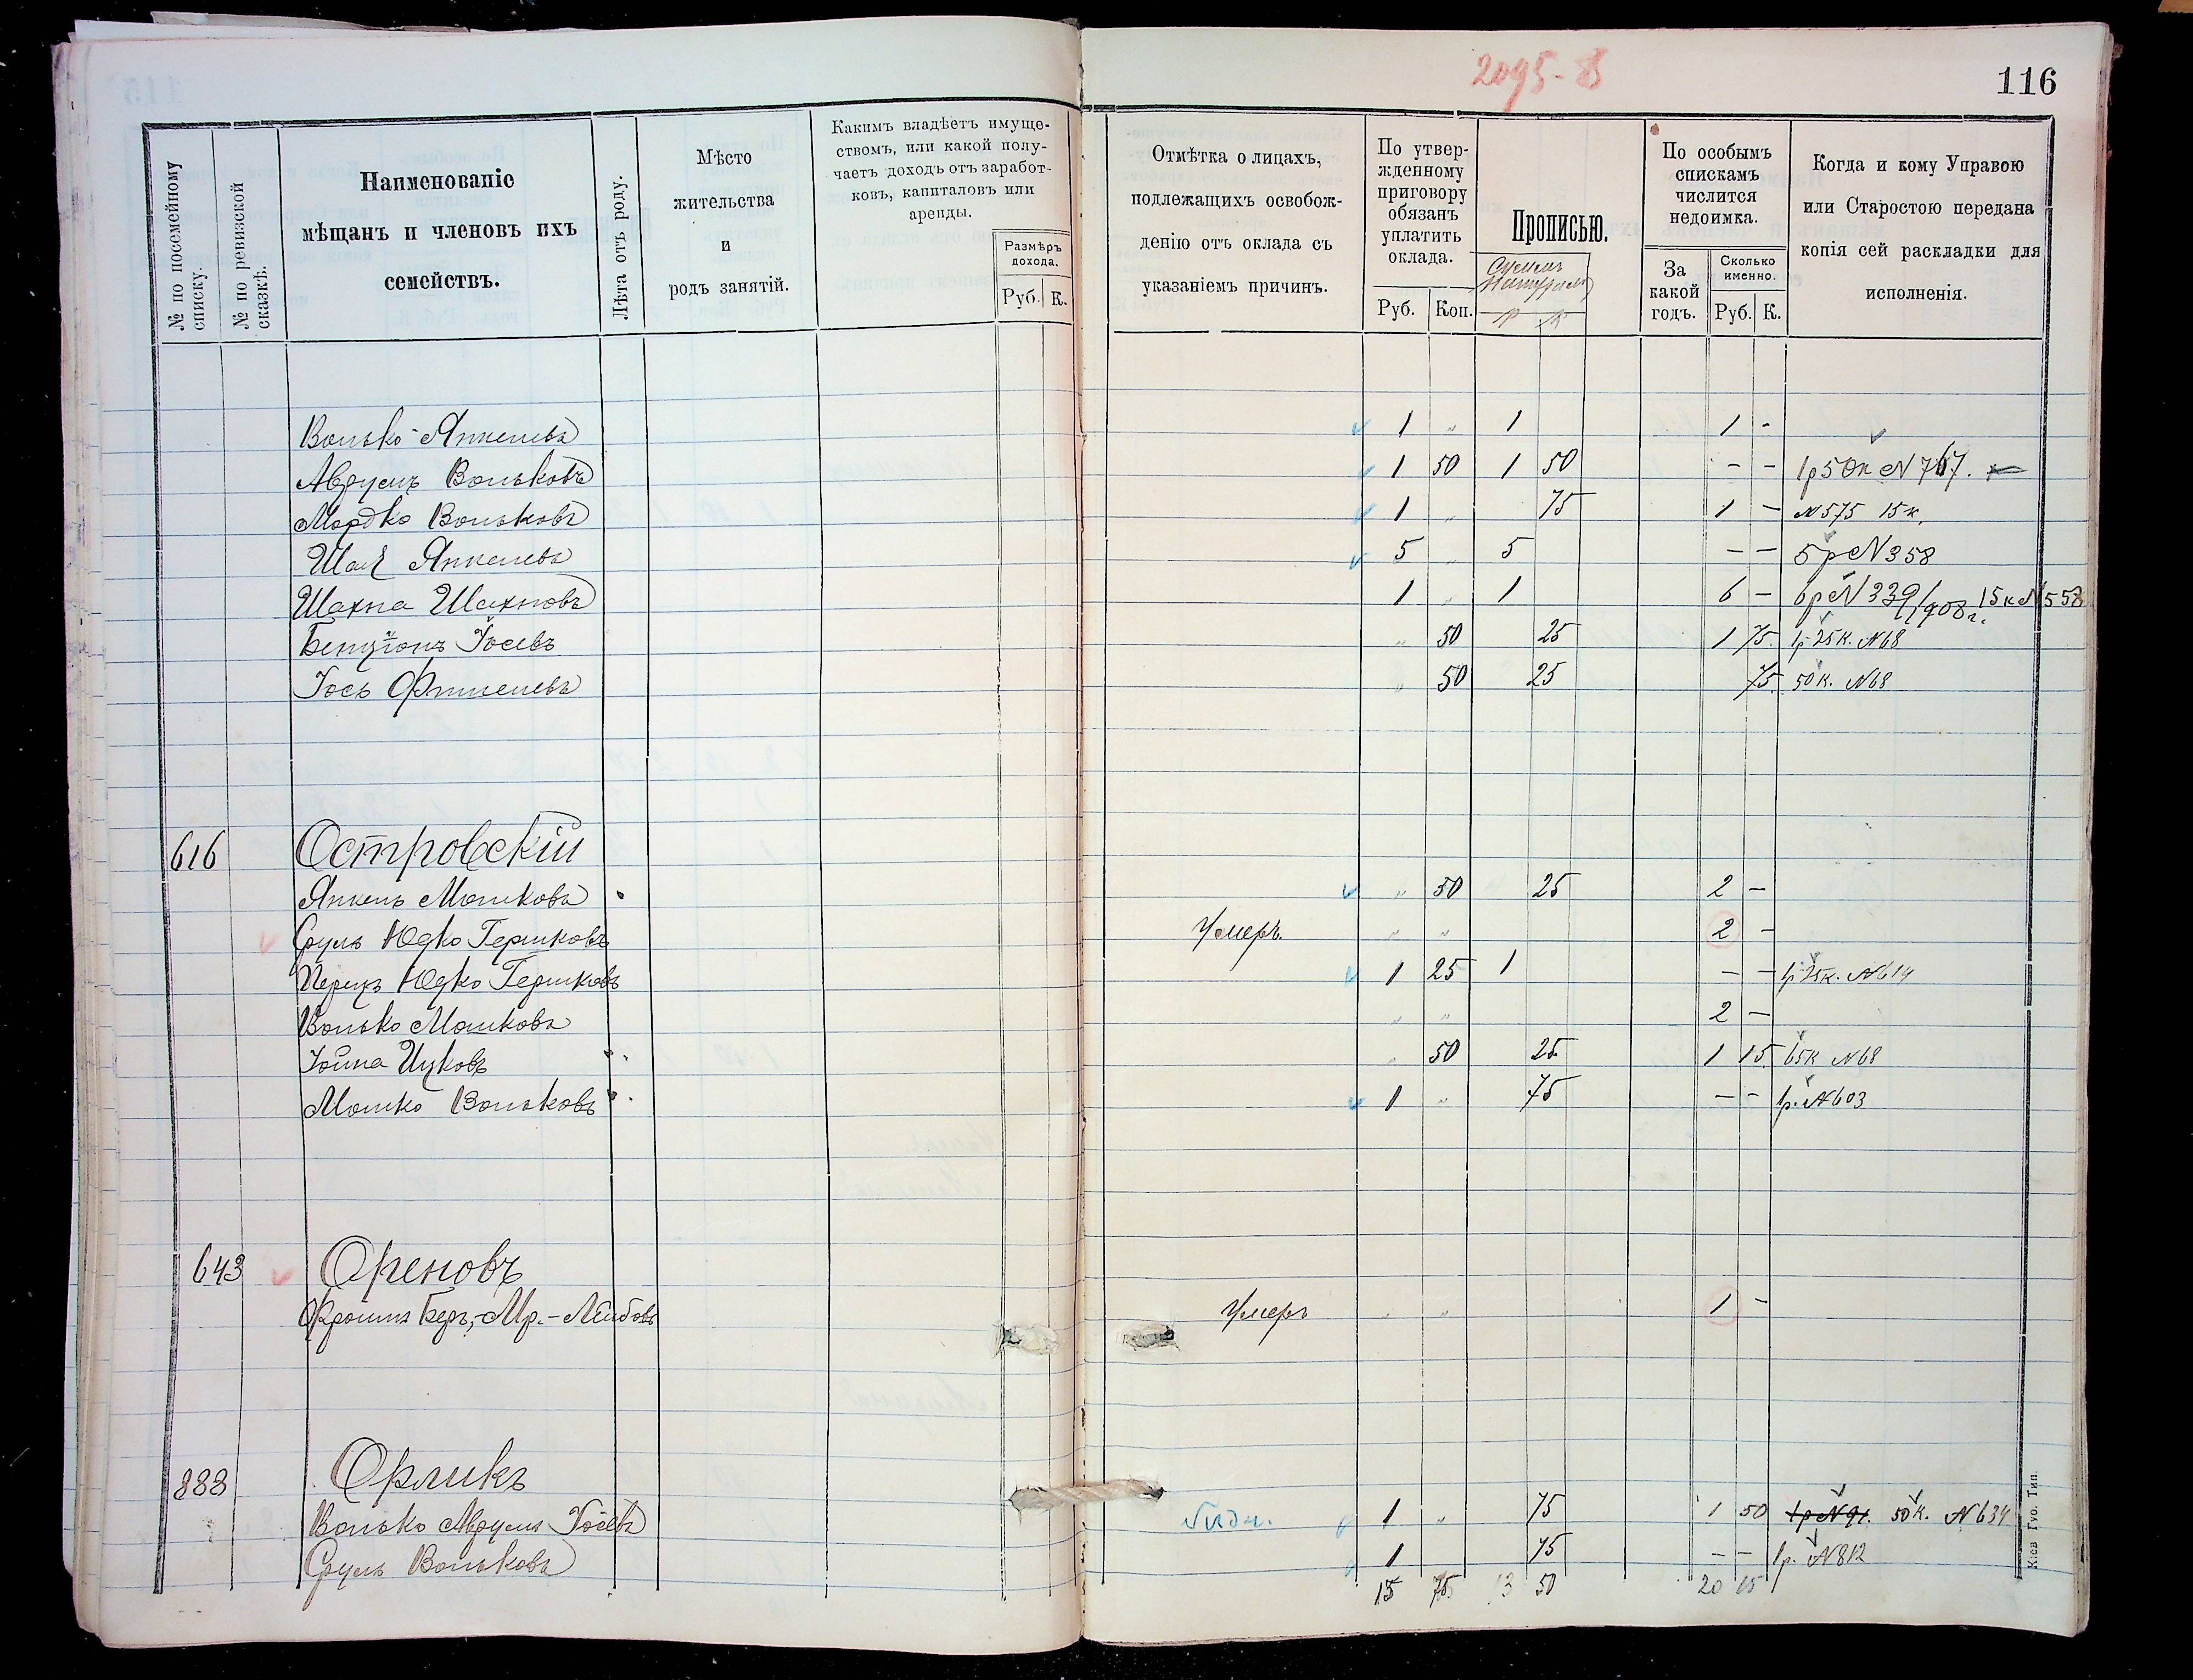 2095-8
116
№ по посемейному списку.
№ по ревизской сказкѣ.
Наименованіе
мѣщанъ и членовъ ихъ
семействъ.
Лѣта отъ роду.
Мѣсто
жительства
и
родъ занятій.
Какимъ владѣетъ имуще-
ствомъ, или какой полу-
чаетъ доходъ отъ заработ-
ковъ, капиталовъ или
аренды.
Размѣръ
дохода.
Руб. К.
Отмѣтка о лицахъ,
подлежащихъ освобож-
денію отъ оклада съ
указаніемъ причинъ.
По утвер-
жденному
приговору
обязанъ
уплатить
оклада.
Руб. Коп.
Прописью.
Р К
По особымъ
спискамъ
числится
недоимка.
За
какой
годъ.
Сколько
именно.
Руб. К.
Когда и кому Управою
или Старостою передана
копія сей раскладки для
исполненія.
Волько Янкелевъ 1 „ 1 1 -
Аврумъ Вольковъ 1 50 1 50 - - 1р 50к N 767.
Мордко Вольковъ 1 „ 75 1 - N 575 15к.
Янкелевъ 5 „ 5 - - 5р N 358
Шахна Шахновъ 1 „ 1 6 - 6р N 339/908г. 15к N 558
Бенціонъ Іосевъ „ 50 25 1 75. 1р 25к. N 68
Іось „ 50 25 75. 50к. N 68
616 Островскій
Янкель Мошковъ „ 50 25 2 -
Сруль Юдко Гершковъ Умеръ. „ „ 2 -
Перецъ Юдко Гершковъ 1 25 1 - - 1р 25к. N 614
Волько Мошковъ „ „ 2 -
Іойна Ицковъ „ 50 25 1 15. 65к N 68
Мошко Вольковъ 1 „ 75 - - 1р. N 603
643 Ореновъ
Фроимъ Беръ-Мр.-Лейбовъ Умеръ „ „ 1 -
888 Орликъ
Волько Аврумъ Іосевъ 1 „ 75 1 50 1р N 91. 50к. N 634
Сруль Вольковъ 1 75 - - 1р. N 812
15 75 13 50 20 65
Кіев Гуо. Тип.